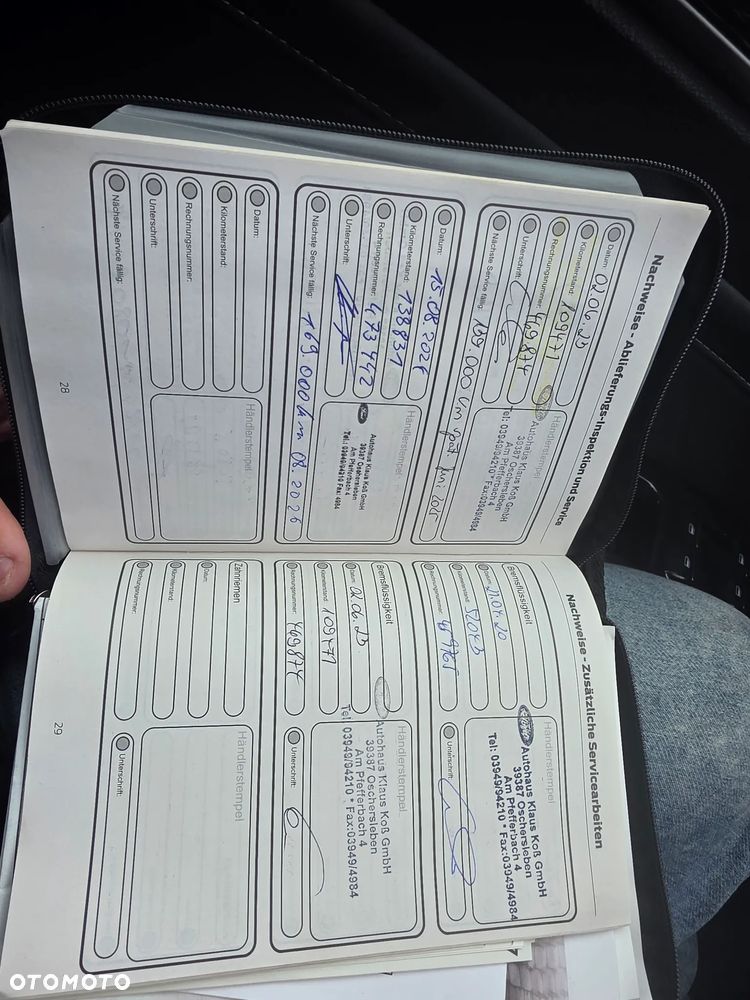 Nachweise - Ablieferungs-Inspektion und Service
Datum: 02.06.23
Kilometerstand: 109471
Rechnungsnummer: 469874
Unterschrift:
Nächste Service fällig: 139.000 km spät. Jun. 2025
Händlerstempel
Autohaus Klaus Koß GmbH
39387 Oschersleben
Am Pfefferbach 4
Tel.: 03949/94210 * Fax:03949/4984
Datum: 15.08.2024
Kilometerstand: 138831
Rechnungsnummer: 473442
Unterschrift:
Nächste Service fällig: 169.000 km 08.2026
Händlerstempel
Autohaus Klaus Koß GmbH
39387 Oschersleben
Am Pfefferbach 4
Tel.: 03949/94210 Fax: 4984
Datum:
Kilometerstand:
Rechnungsnummer:
Unterschrift:
Nächste Service fällig:
Händlerstempel
28
Nachweise - Zusätzliche Servicearbeiten
Bremsflüssigkeit
Datum: 21.04.20
Kilometerstand:
Rechnungsnummer:
Händlerstempel
Autohaus Klaus Koß GmbH
39387 Oschersleben
Am Pfefferbach 4
Tel: 03949/94210 * Fax:03949/4984
Unterschrift:
Bremsflüssigkeit
Datum: 02.06.23
Kilometerstand: 109471
Rechnungsnummer: 469874
Händlerstempel
Autohaus Klaus Koß GmbH
39387 Oschersleben
Am Pfefferbach 4
Tel: 03949/94210 * Fax:03949/4984
Unterschrift:
Zahnriemen
Datum:
Kilometerstand:
Rechnungsnummer:
Händlerstempel
Unterschrift:
29
OTOMOTO